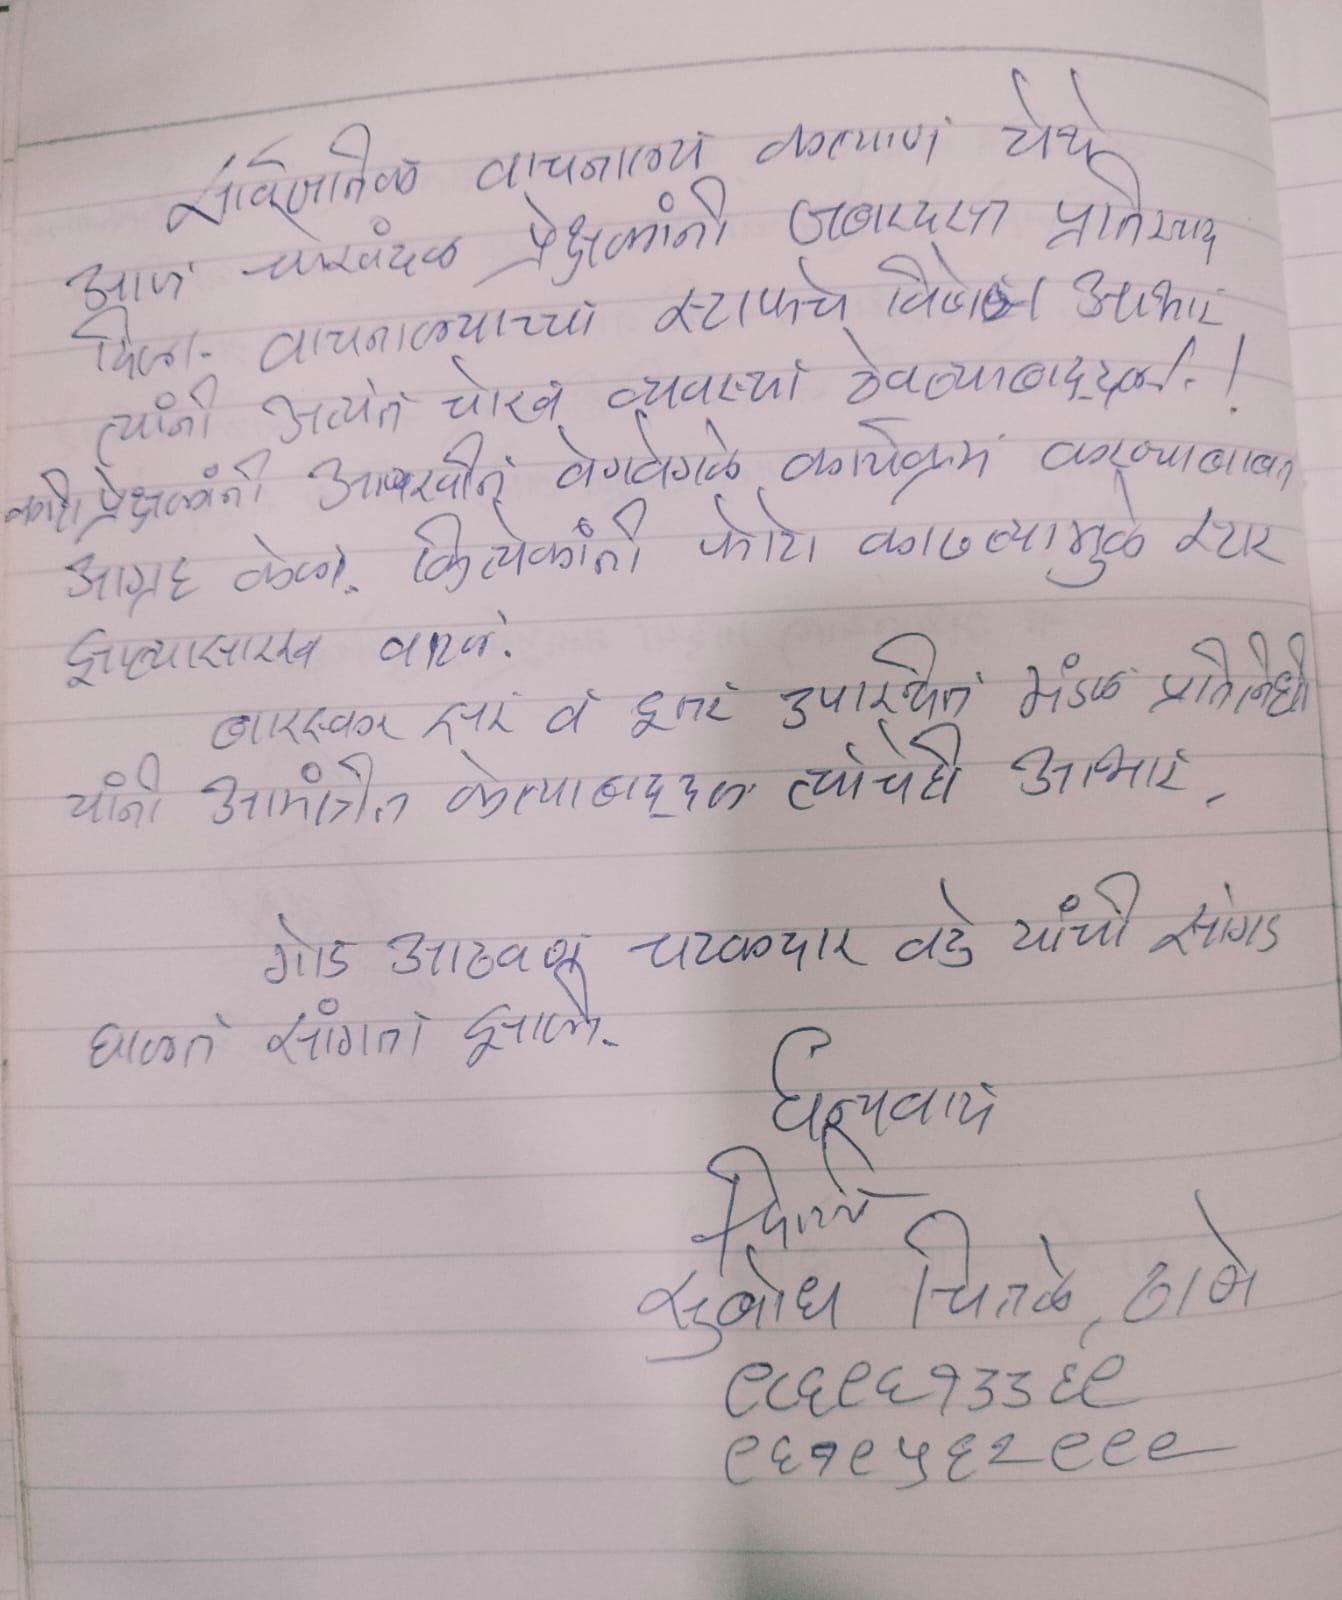 सार्वजनिक वाचनालय कल्याण येथे
आज चोखंदळ प्रेक्षकांनी जबरदस्त प्रतिसाद
दिला. वाचनालयाच्या स्टाफचे विशेष आभार
त्यांनी अत्यंत चोख व्यवस्था ठेवल्याबद्दल.!
काही प्रेक्षकांनी आणखीन वेगवेगळे कार्यक्रम करण्याबाबत
आग्रह केला. कित्येकांनी फोटो काढल्यामुळे स्टार
झाल्यासारख वाटलं.
बारस्कर सर व इतर उपस्थित मंडळ प्रतिनिधी
यांनी आमंत्रीत केल्याबद्दल त्यांचेही आभार.
गोड आठवण चटकदार वडे यांची सांगड
घालत सांगता झाली.
धन्यवाद
सुबोध चितळे, ठाणे
९८६९६१३३६९
९६१९५६२९९९